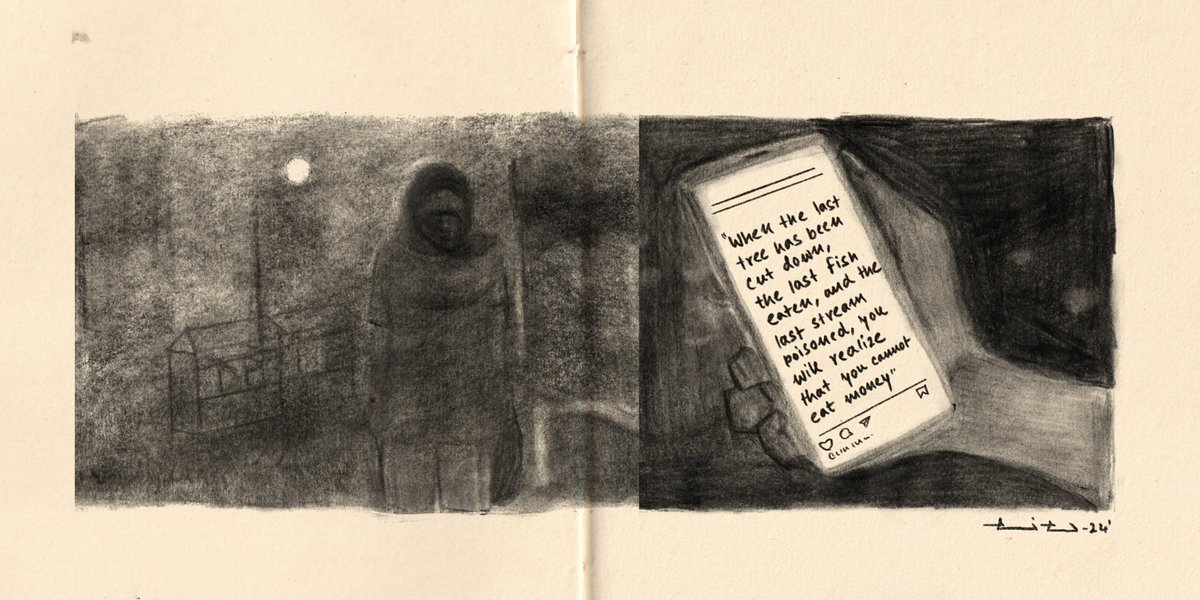 "When the last
tree has been
cut down,
the last fish
eaten, and the
last stream
poisoned, you
will realize
that you cannot
eat money"
-24'